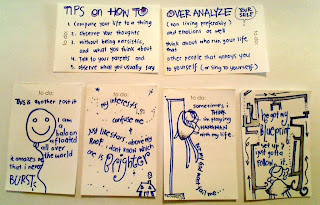 TIPS on HOW TO
1. Compare your life to a thing
2. observe your thoughts
3. without being narsistic,
and what you think about
4. Talk to your parents and
5. observe what you usually say
OVER ANALYZE YOUR SELF
(non living preferably)
and emotions as well
think about who run your life.
other people that annoys you
to yourself (or sing to yourself)
to do:
This is another post it
I am
a
baloon
afloated
all over
the world
it amazes me
that i never
BURST.
to do:
My interests
confuse me.
My like stars above my
Roof. i dont know which
one is BRIGHTER
to do:
sometimes i
THINK
im playing
HANGMAN
with my life.
to do:
i've got my
BLUEPRINT
set up i
just gotta
follow it.